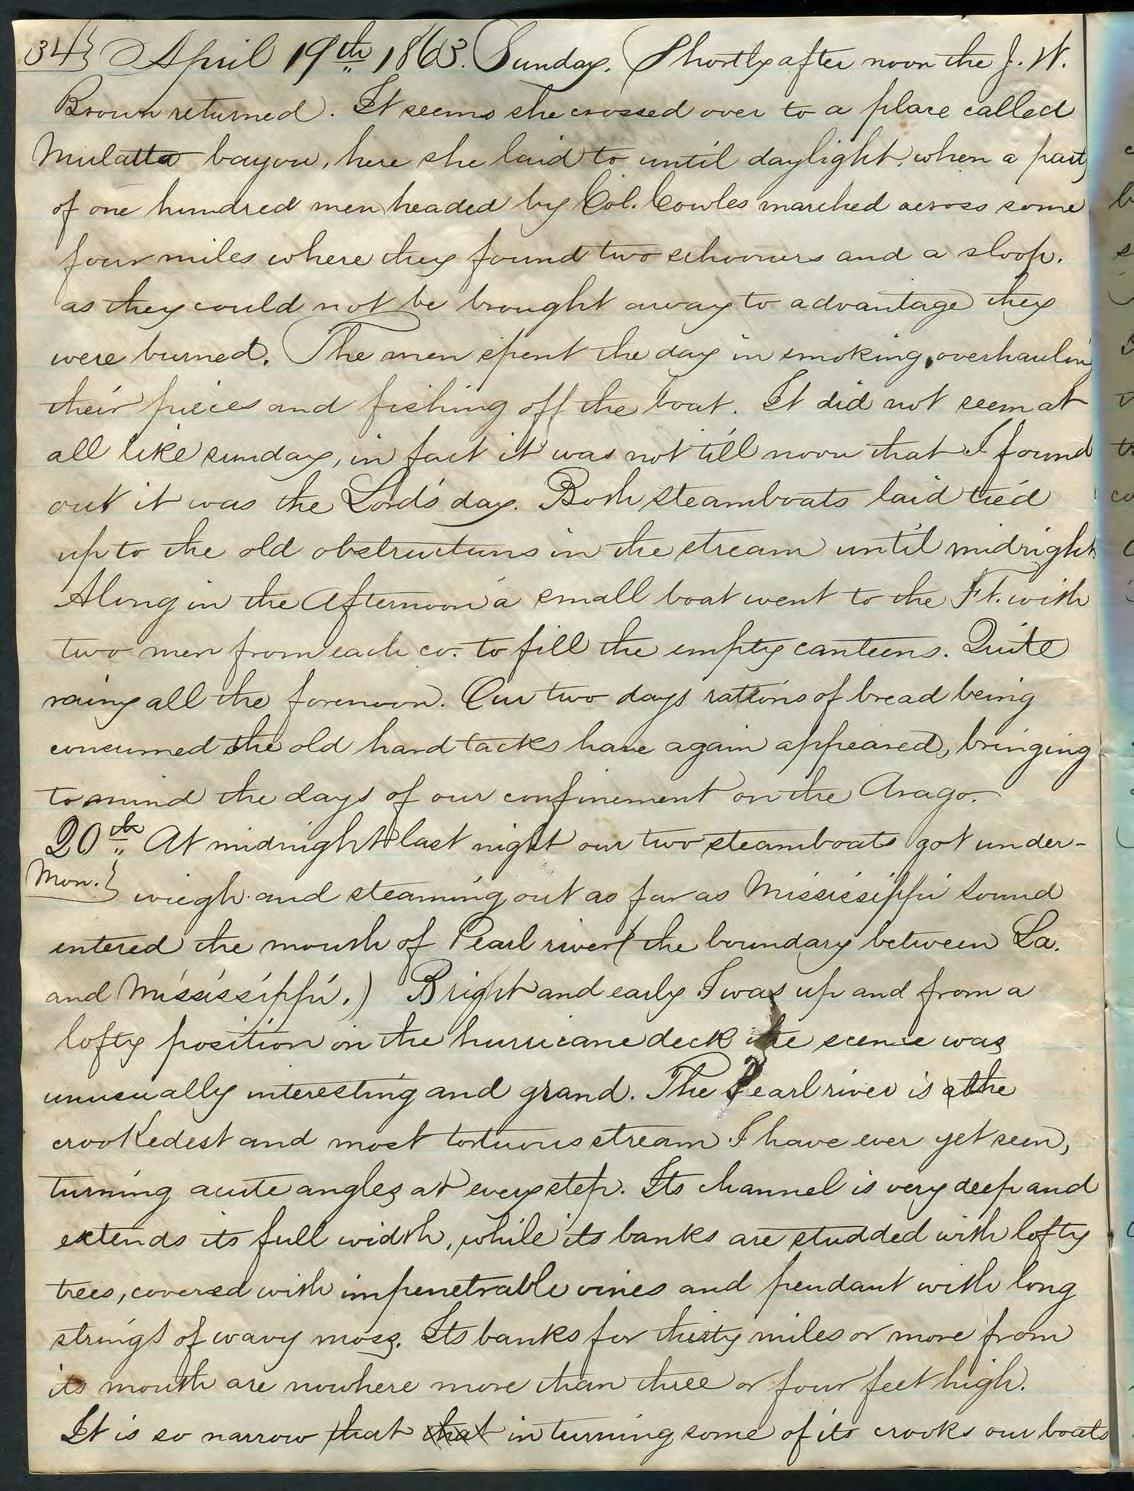 34} April 19th 1863. Sunday. Shortly after noon the J. W.
Brown returned. It seems she crossed over to a place called
Mulatta bayou, here she laid to until daylight. when a party
of one hundred men headed by Col. Cowles marched across some
four miles where they found two schooners and a sloop.
as they could not be brought away to advantage they
were burned. The men spent the day in smoking, overhaulin
their pieces and fishing off the boat. It did not seem at
all like sunday, in fact it was not till noon that I found
out it was the Lord's day. Both steamboats laid tied
up to the old obstructions in the stream until midnight.
Along in the Afternoon a small boat went to the Ft. with
two men from each co. to fill the empty canteens. Quite
rainy all the forenoon. Our two days rations of bread being
consumed the old hard tacks have again appeared, bringing
to mind the days of our confinement on the Arago.
20th At midnight last night our two steamboats got under-
Mon.} wiegh and steaming out as far as Mississippi Sound
entered the mouth of Pearl river (the boundary between La.
and Mississippi.) Bright and early I was up and from a
lofty position on the hurricane deck the scene was
unusually interesting and grand. The Pearl river is the
crookedest and most tortuous stream I have ever yet seen,
turning acute angles at every step. Its channel is very deep and
extends its full width, while its banks are studded with lofty
trees, covered with impenetrable vines and pendant with long
strings of wavy moss. Its banks for thirty miles or more from
its mouth are nowhere more than three or four feet high.
It is so narrow that that in turning some of its crooks our boats